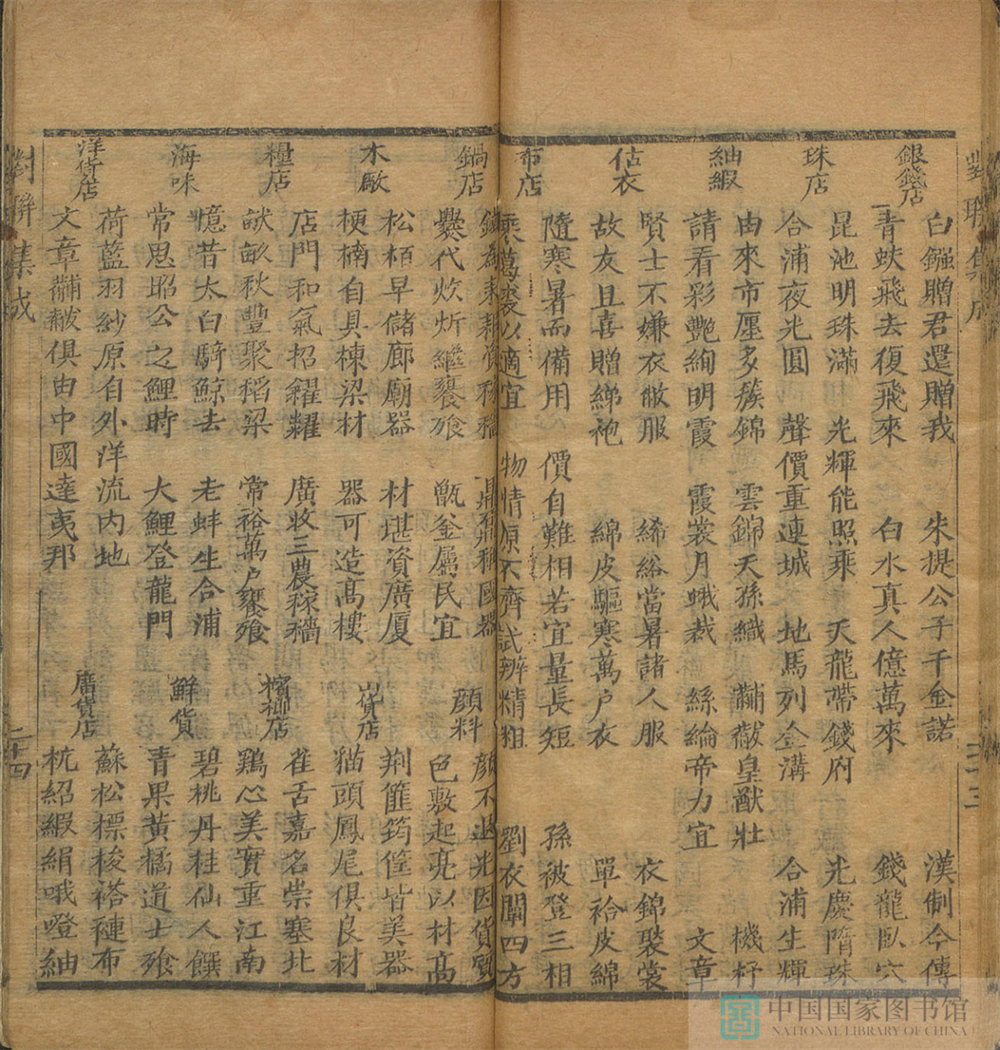 對聯集成
銀錢店
白鏹贈君還贈我 朱提公子千金諾 漢制今傳
青蚨飛去復飛來 白水真人億萬來 錢龍臥穴
珠店
昆池明珠滿 光輝能照乘 天龍帶錢府 光慶隋珠
合浦夜光圓 聲價重連城 地馬列金溝 合浦生輝
紬緞
由來市厘多簇錦 雲錦天孫織 黼黻皇猷壯 機杼
請看彩艷絢明霞 霞裳月蛾裁 絲綸帝力宜 文章
估衣
賢士不嫌衣敝服 絺綌當暑諸人服 衣錦褧裳
故友且喜贈綈袍 綿皮驅寒萬户衣 單袷皮綿
布店
隨寒暑而備用 價自難相若宜量長短 孫被登三相
裘葛以適宜 物情原不齊試辨精粗 劉衣闡四方
二十三
鍋店
鼎鼐稱國器
爨代炊炘繼饔飱 甑釜屬民宜
顔料
顔不退光因貨實
色敷起亮以材高
木厰
松栢早儲廊廟器 材堪資廣厦
梗楠自具棟梁材 器可造高樓
山貨店
荆籬筠筐皆美器
猫頭鳳尾俱良材
糧店
店門和氣招糴糶 廣收三農稼穡
畝秋豐聚稻梁 常裕萬户饔飱
檳榔店
雀舌嘉名崇塞北
鷄心美實重江南
海味
憶昔太白騎鯨去 老蚌生合浦
常思昭公之鯉時 大鯉登龍門
鮮貨
碧桃丹桂仙人饌
青果黄橘道士飱
洋貨店
荷藍羽紗原自外洋流内地
文章黼黻俱由中國達夷邦
廣貨店
蘇松標梭褡褳布
杭紹緞絹哦噔紬
對聯集成
二十四
中国国家图书馆
NATIONAL LIBRARY OF CHINA